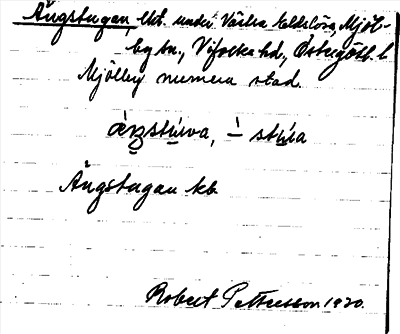 Ängstugan, lht. under Västra Eldslösa, Mjöl-
by sn., Vifolka hd., Östergötl. l.
Mjölby numera stad.
stúwa, - stúa
Ängstugan kb
Robert Pettersson 1920.